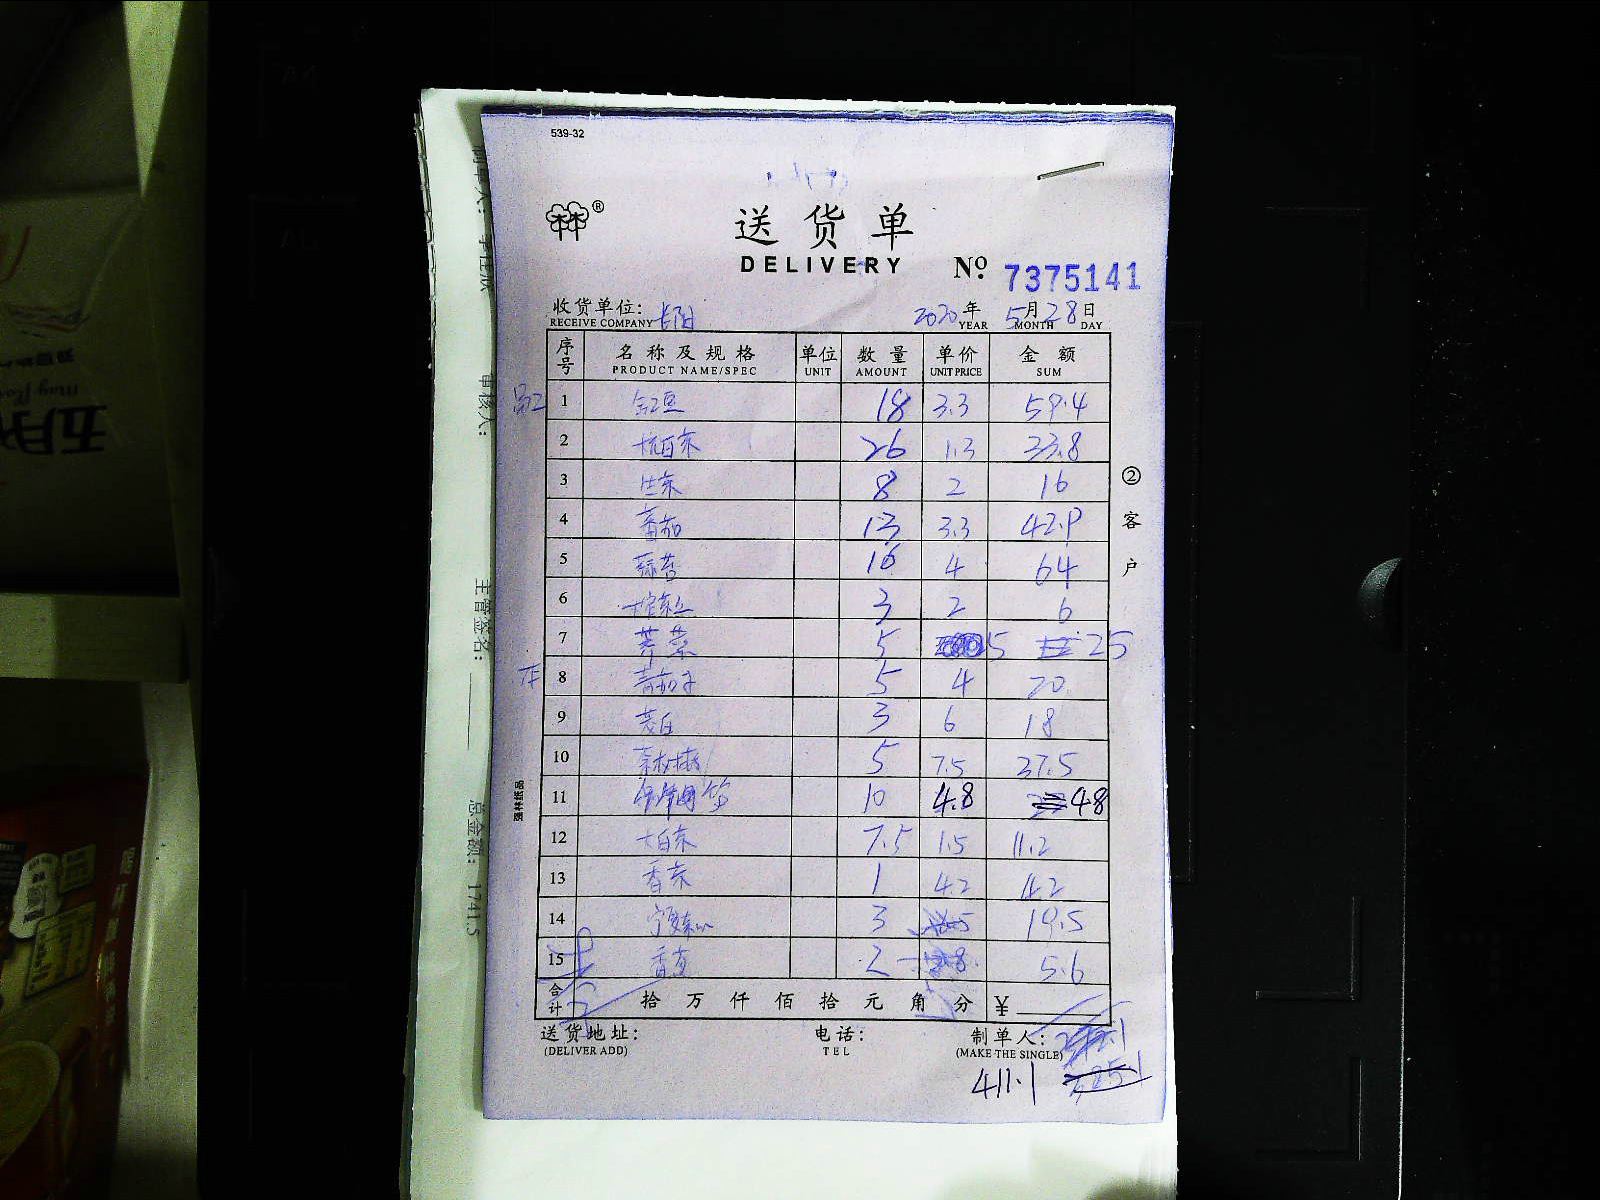 539-32
送货单
DELIVERY
No. 7375141
收货单位: 长阳
RECEIVE COMPANY
2020年 5月28日
YEAR MONTH DAY
序号 名称及规格 单位 数量 单价 金额
PRODUCT NAME/SPEC UNIT AMOUNT UNIT PRICE SUM
1 豇豆 18 3.3 59.4
2 杭白菜 26 1.3 33.8
3 8 2 16
4 番茄 13 3.3 42.9
5 蒜苔 16 4 64
6 3 2 6
7 芹菜 5 5 25
8 青茄子 5 4 20
9 3 6 18
10 5 7.5 37.5
11 10 4.8 48
12 大白菜 7.5 1.5 11.2
13 香菜 1 4.2 4.2
14 3 19.5
15 2 5.6
合计 拾万仟佰拾元角分 ¥
送货地址: 电话: 制单人:
(DELIVER ADD) TEL (MAKE THE SINGLE)
411.1
②客户
强林纸品
审核人:
主管签名:
总金额: 1741.5